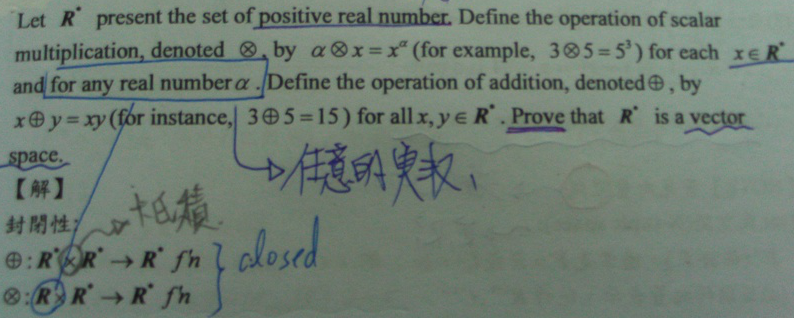 Let R* present the set of positive real number. Define the operation of scalar
multiplication, denoted ⊗, by α⊗x = x^α (for example, 3⊗5 = 5³) for each x ∈ R*
and for any real number α. Define the operation of addition, denoted ⊕, by
x⊕y = xy (for instance, 3⊕5 = 15) for all x, y ∈ R*. Prove that R* is a vector
space.
任意的实数、
【解】
卡氏積
封閉性:
⊕: R* × R* → R* f'n
closed
⊗: R × R* → R* f'n